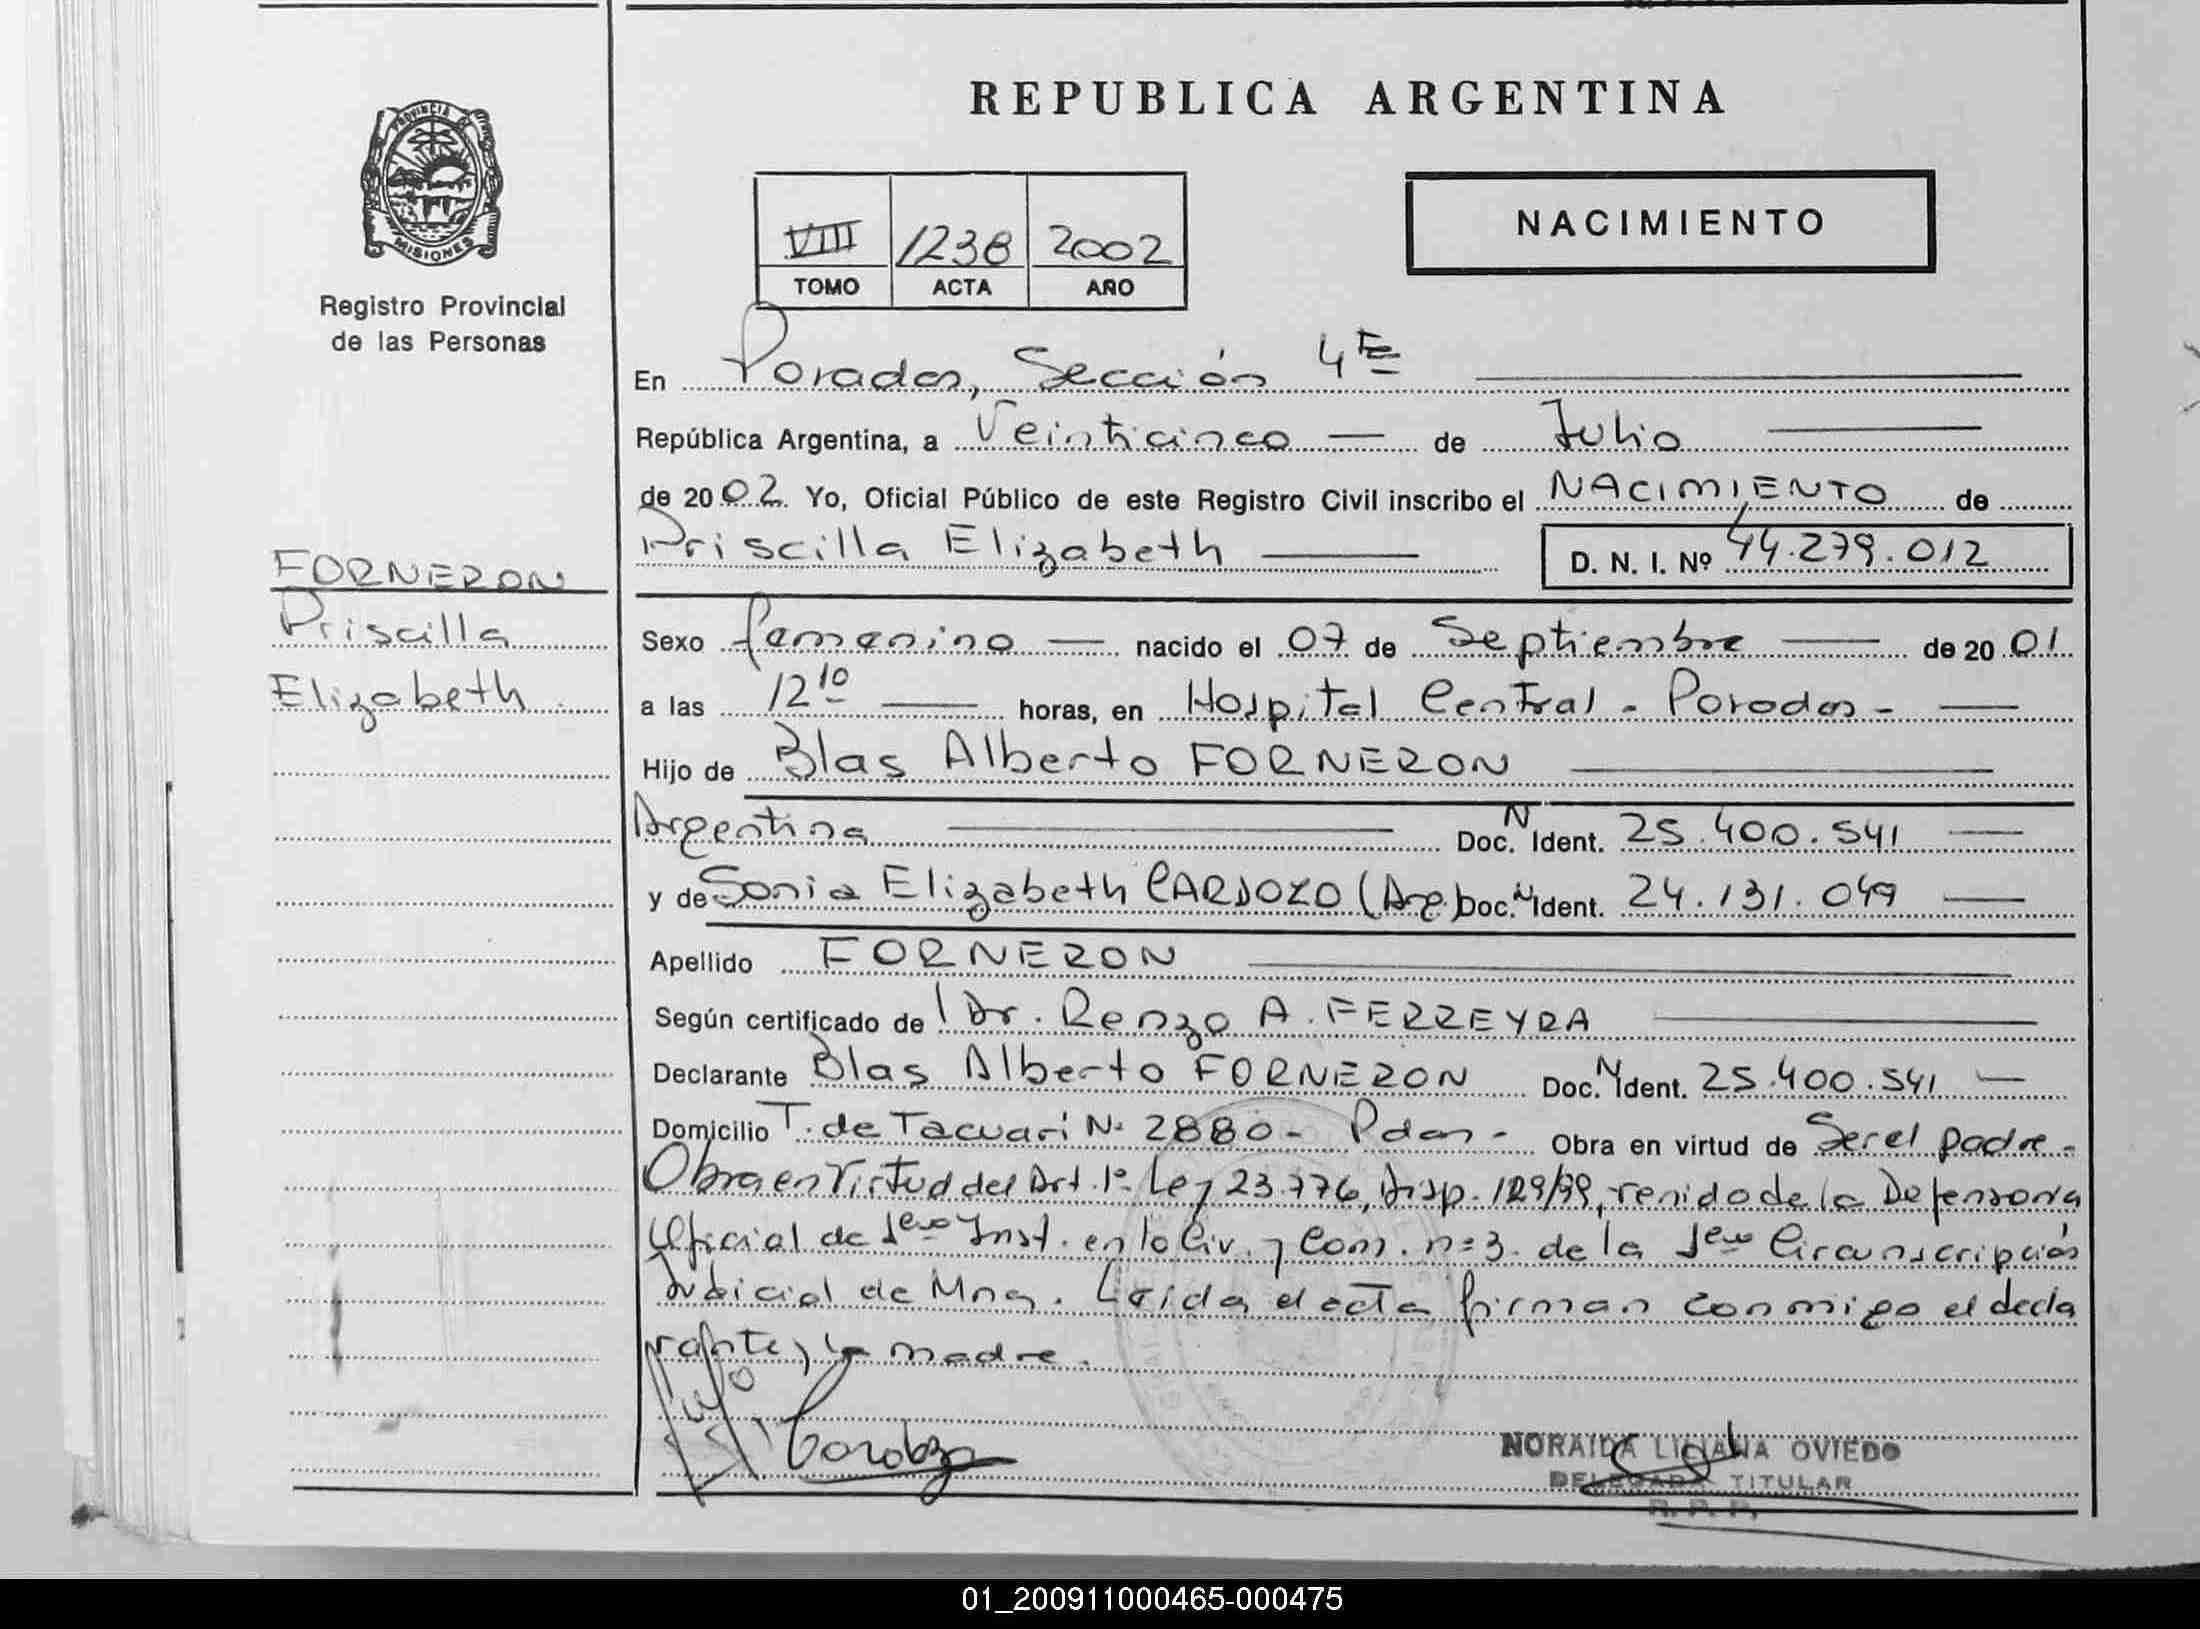 REPUBLICA ARGENTINA
PROVINCIA DE
MISIONES
Registro Provincial
de las Personas
NACIMIENTO
VIII 1238 2002
TOMO ACTA AÑO
En Posadas, Sección 4ta
República Argentina, a Veinticinco — de Julio
de 2002. Yo, Oficial Público de este Registro Civil inscribo el NACIMIENTO de
Priscilla Elizabeth
D. N. I. Nº 44.279.012
FORNERON
Priscilla
Elizabeth
Sexo femenino — nacido el 07 de Septiembre — de 2001
a las 12 10 horas, en Hospital Central - Posadas -
Hijo de Blas Alberto FORNERON
Argentina Doc. N Ident. 25.400.541
y de Sonia Elizabeth CARDOZO (Arg.) Doc. N Ident. 24.131.049
Apellido FORNERON
Según certificado de l Dr. Renzo A. FERREYRA
Declarante Blas Alberto FORNERON Doc. N Ident. 25.400.541
Domicilio T. de Tacuari Nº 2880 - Pdas - Obra en virtud de Ser el padre -
Obra en Virtud del Art. 1º Ley 23.776, Disp. 129/99, venido de la Defensoria
Oficial de 1era Inst. en lo Civ. y Com. nº 3. de la 1era Circunscripción
Judicial de Mnes. Leida el acta firman conmigo el decla
rante y la madre.
Cardozo
NORAIDA LILIANA OVIEDO
DELEGADA TITULAR
R. P. P.
01_200911000465-000475